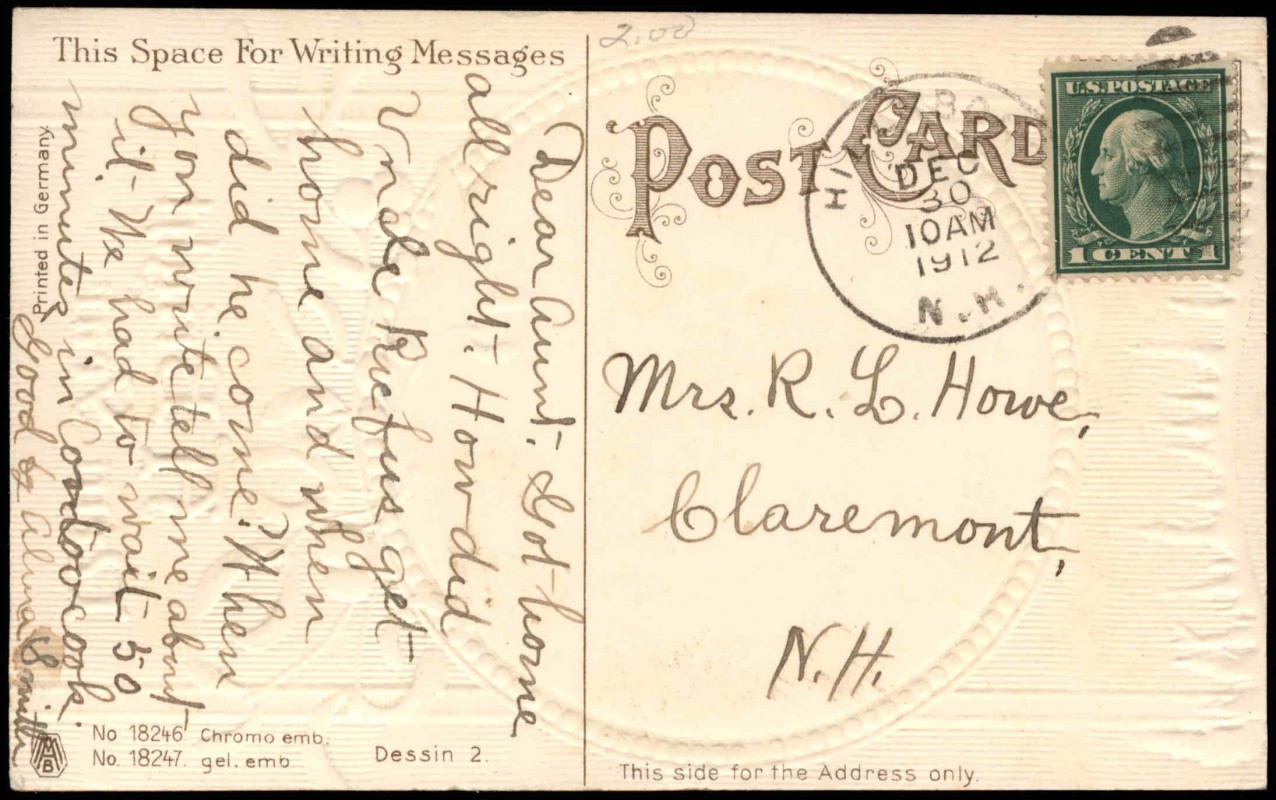 This Space For Writing Messages
Dear Aunt. Got home
all right. How did
Uncle Rufus get
home and when
did he come? When
you write tell me about
it. We had to wait 50
minutes in Contoocook.
Good by Alma Smith
Printed in Germany.
No 18246 Chromo emb.
No. 18247. gel. emb.
Dessin 2.
MB
2.00
POST CARD
DEC
30
10AM
1912
N.H.
U.S. POSTAGE
1 CENT 1
Mrs. R. L. Howe,
Claremont,
N.H.
This side for the Address only.